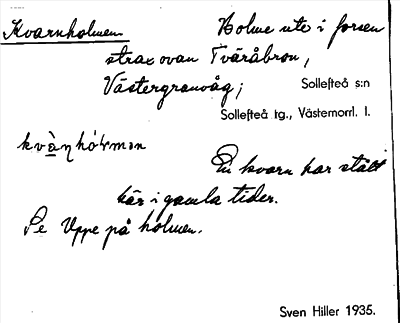 Kvarnholmen Holme ute i forsen
strax ovan Tväråbron,
Västergranvåg; Sollefteå s:n
Sollefteå tg., Västernorrl. l.
En kvarn har stått
här i gamla tider.
Se Uppe på holmen.
Sven Hiller 1935.